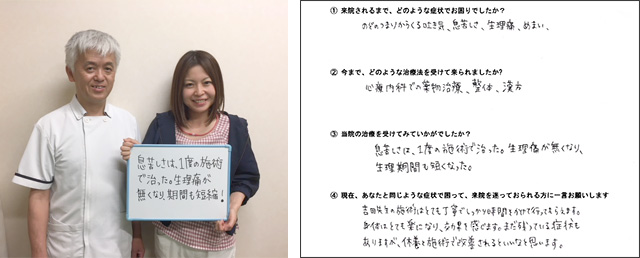 息苦しさは、1度の施術
で治った。生理痛が
無くなり、期間も短縮！
① 来院されるまで、どのような症状でお困りでしたか？
のどのつまりからくる吐き気、息苦しさ、生理痛、めまい、
② 今まで、どのような治療法を受けて来られましたか？
心療内科での薬物治療、整体、漢方
③ 当院の治療を受けてみていかがでしたか？
息苦しさは、1度の施術で治った。生理痛が無くなり、
生理期間も短くなった。
④ 現在、あなたと同じような症状で困って、来院を迷っておられる方に一言お願いします
吉田先生の施術はとても丁寧でしっかり時間をかけて行ってもらえます。
身体はとても楽になり、効果を感じます。まだ残っている症状も
ありますが、休養と施術で改善されるといいなと思います。